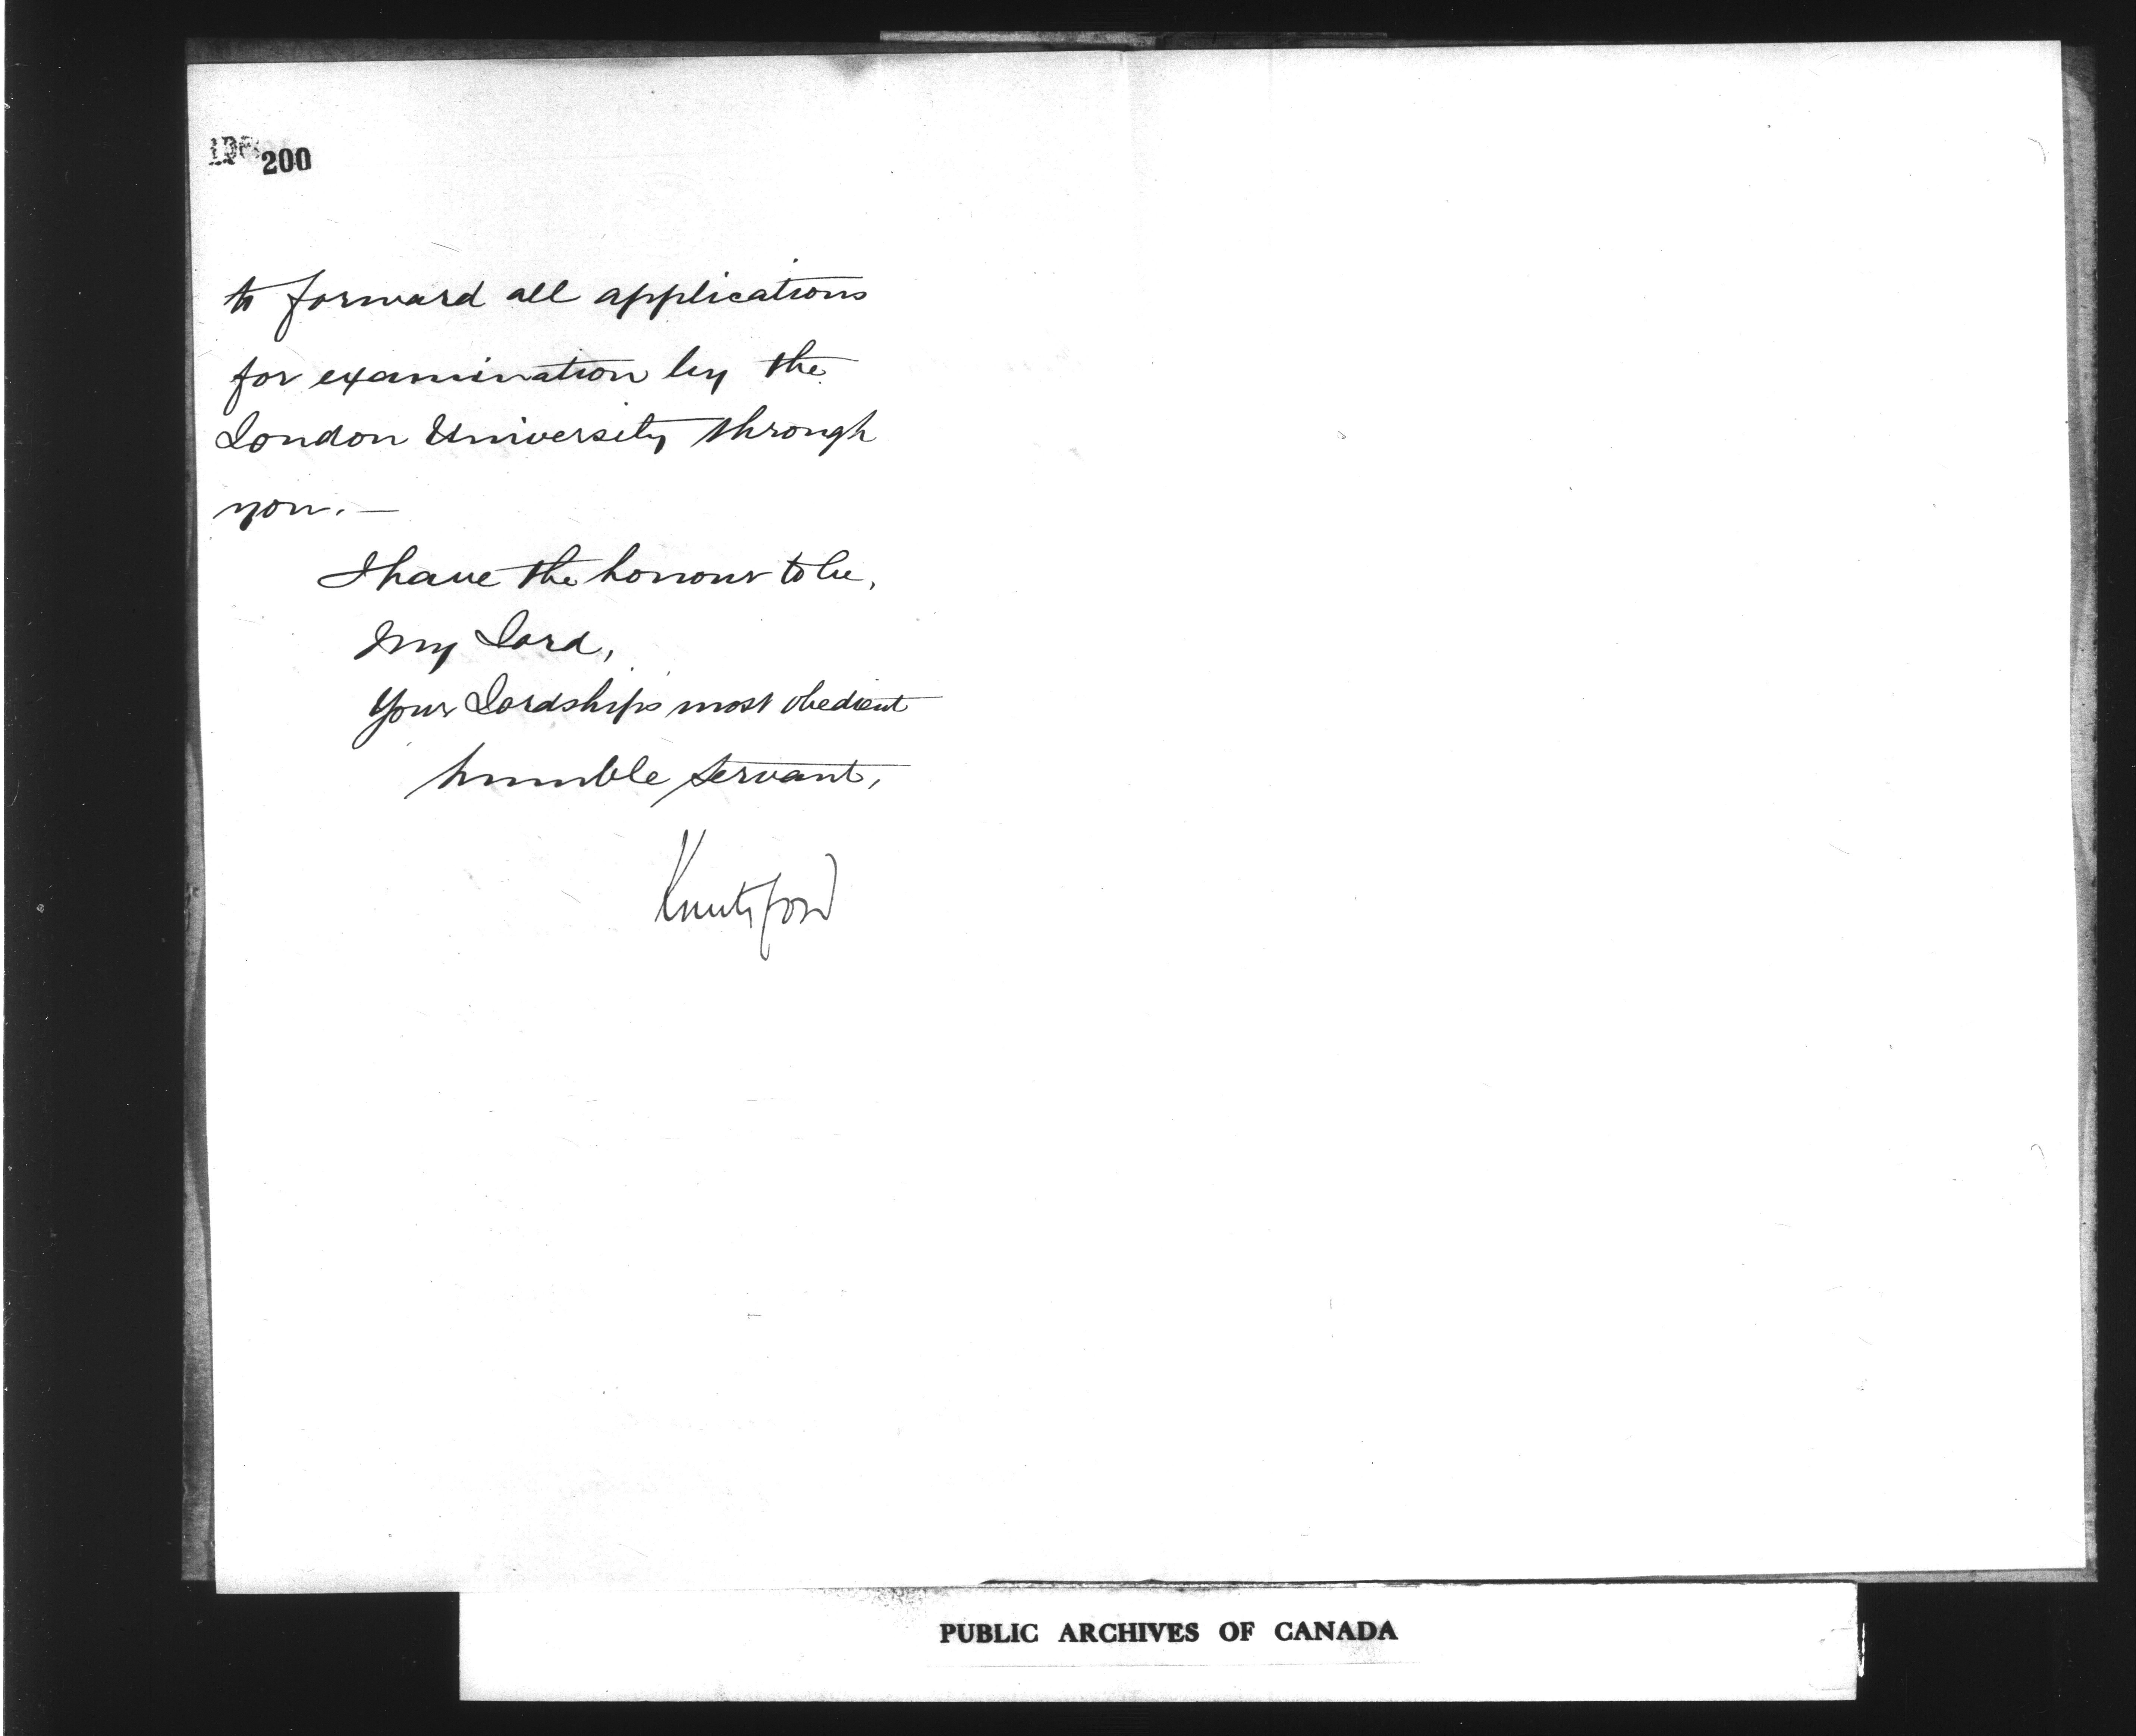 200
to forward all applications
for examination by the
London University through
you. —
I have the honour to be,
My Lord,
Your Lordship's most obedient
humble servant,
Knutsford
PUBLIC ARCHIVES OF CANADA